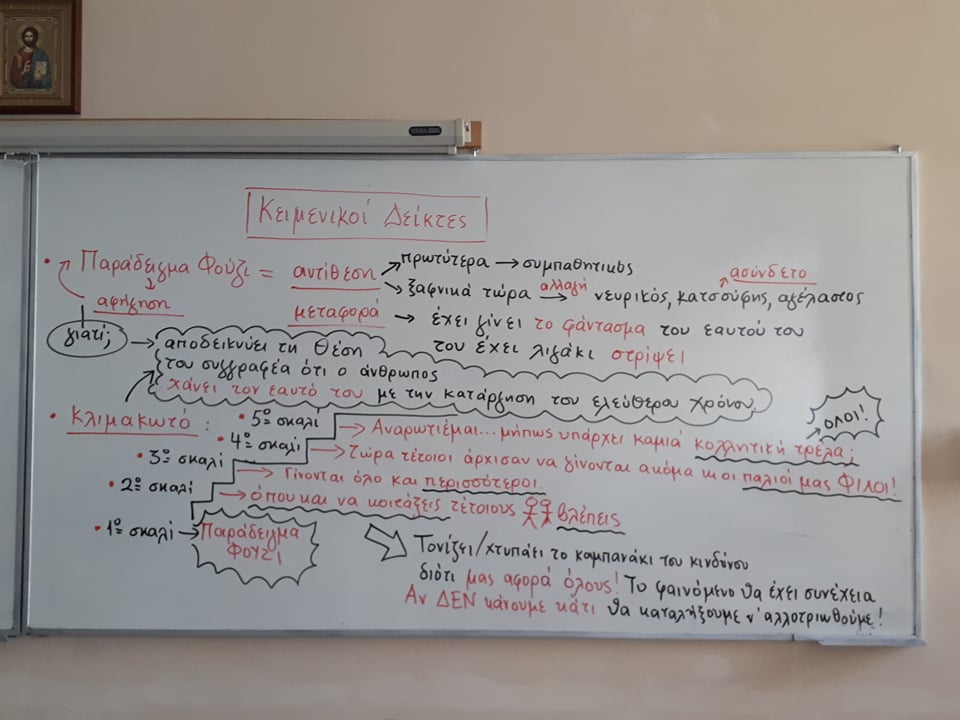 Κειμενικοί Δείκτες
• Παράδειγμα Φούζι = αντίθεση πρωτύτερα → συμπαθητικός
ξαφνικά τώρα αλλαγή → νευρικός, κατσούφης, αγέλαστος
ασύνδετο
αφήγηση
μεταφορά → έχει γίνει το φάντασμα του εαυτού του
του έχει λιγάκι στρίψει
γιατί; → αποδεικνύει τη θέση
του συγγραφέα ότι ο άνθρωπος
χάνει τον εαυτό του με την κατάργηση του ελεύθερου χρόνου.
• Κλιμακωτό:
• 5ο σκαλί → Αναρωτιέμαι... μήπως υπάρχει καμιά κολλητική τρέλα; → ΟΛΟΙ!
• 4ο σκαλί → Τώρα τέτοιοι άρχισαν να γίνονται ακόμα κι οι παλιοί μας ΦΙΛΟΙ!
• 3ο σκαλί → Γίνονται όλο και περισσότεροι.
• 2ο σκαλί → όπου και να κοιτάξεις τέτοιους βλέπεις
• 1ο σκαλί → Παράδειγμα
ΦΟΥΖΙ
Τονίζει/χτυπάει το καμπανάκι του κινδύνου
διότι μας αφορά όλους! Το φαινόμενο θα έχει συνέχεια
Αν ΔΕΝ κάνουμε κάτι θα καταλήξουμε ν' αλλοτριωθούμε!